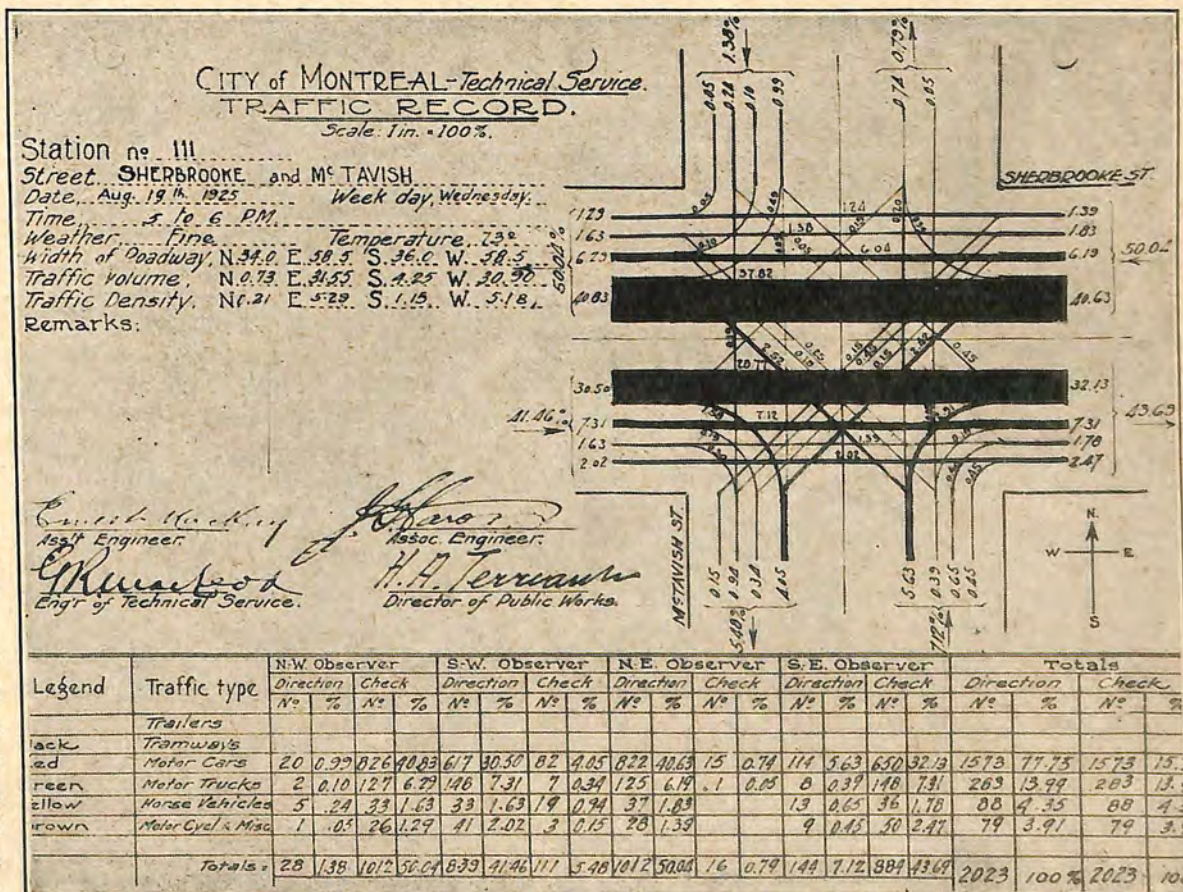 CITY of MONTREAL-Technical Service.
TRAFFIC RECORD.
Scale: 1in. = 100%.
Station nº 111
Street. SHERBROOKE and Mc TAVISH
Date, Aug. 19th 1925 Week day, Wednesday.
Time 5 to 6 P.M.
Weather, Fine Temperature, 73º
Width of Roadway, N.34.0 E.58.5 S.36.0 W.58.5
Traffic Volume, N.0.73 E.31.55 S.4.25 W.30.90
Traffic Density, N.0.21 E.5.29 S.1.15 W.5.18
Remarks:
Ass't Engineer.
Assoc. Engineer.
Eng'r of Technical Service.
H.A. Terreault
Director of Public Works.
1.38% 0.79%
0.05 0.24 0.10 0.99 0.74 0.05
SHERBROOKE ST.
1.29 1.24 1.39
1.63 1.38 1.83
6.29 6.04 6.19
50.04% 50.04
40.83 37.82 40.63
30.50 32.13
41.46% 43.69
7.31 7.12 7.31
1.63 1.78
2.02 2.02 2.47
McTAVISH ST.
0.15 0.94 0.34 4.05 5.63 0.39 0.65 0.45
5.48% 7.12%
N.
W E
S
Legend Traffic type N-W. Observer S-W. Observer N-E. Observer S-E. Observer Totals
Direction Check Direction Check Direction Check Direction Check Direction Check
Nº % Nº % Nº % Nº % Nº % Nº % Nº % Nº % Nº % Nº %
Trailers
ack Tramways
ed Motor Cars 20 0.99 826 40.83 617 30.50 82 4.05 822 40.63 15 0.74 114 5.63 650 32.13 1573 77.75 1573 15.
reen Motor Trucks 2 0.10 127 6.29 148 7.31 7 0.34 125 6.19 .1 0.05 8 0.39 148 7.31 283 13.99 283 13.
ellow Horse Vehicles 5 .24 33 1.63 33 1.63 19 0.94 37 1.83 13 0.65 36 1.78 88 4.35 88 4.
rown Motor Cycl & Misc 1 .05 26 1.29 41 2.02 3 0.15 28 1.39 9 0.45 50 2.47 79 3.91 79 3.
Totals: 28 1.38 1012 50.04 839 41.46 111 5.48 1012 50.04 16 0.79 144 7.12 884 43.69 2023 100% 2023 100